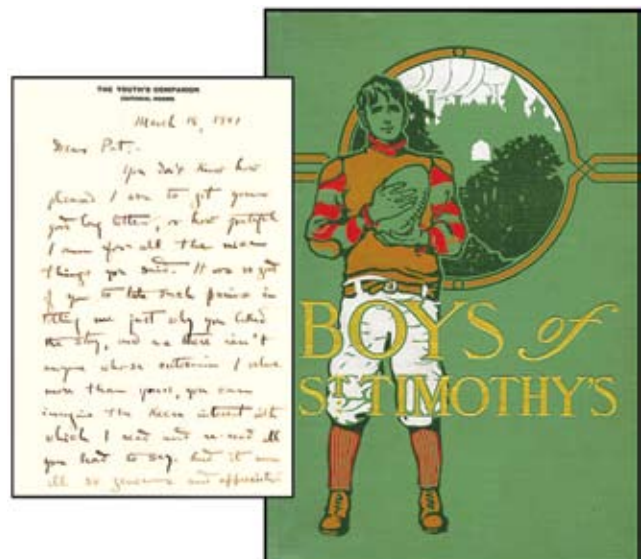 THE YOUTH'S COMPANION
EDITORIAL ROOMS
March 18, 1901
Dear Pat:
You don't know how
pleased I am to get your
good long letter, or how grateful
I am for all the nice
things you said. It was so good
of you to take such pains in
telling me just why you liked
the story, and as there isn't
anyone whose criticism I value
more than yours, you can
imagine the keen interest with
which I read and re-read all
you had to say. And it was
all so generous and appreciative
BOYS of
ST. TIMOTHY'S